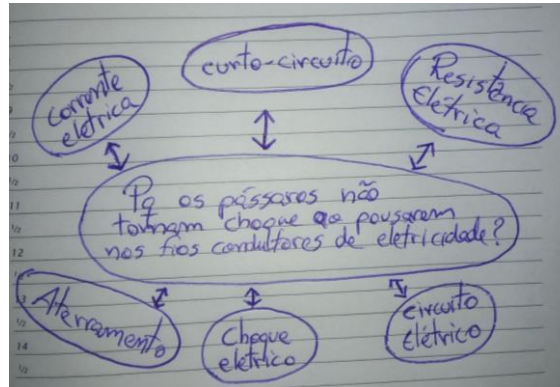 curto-circuito
Corrente
elétrica
Resistência
Elétrica
Pq os pássaros não
tomam choque ao pousarem
nos fios condutores de eletricidade?
Aterramento
Choque
elétrico
circuito
Elétrico
10
1/2
11
1/2
12
1/2
14
1/2